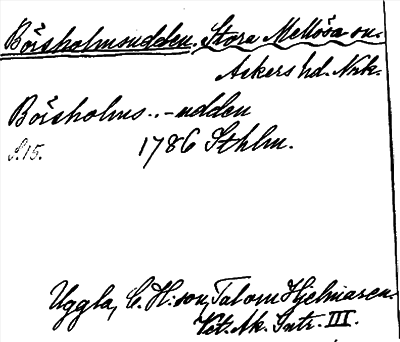 Börsholmsudden, Stora Mellösa sn.
Askers hd. Nrk.
Börsholms..-udden
S.15. 1786 Sthlm.
Uggla, C. H:son, Tal om Hjelmaren.
Vet. Ak. Intr. III.